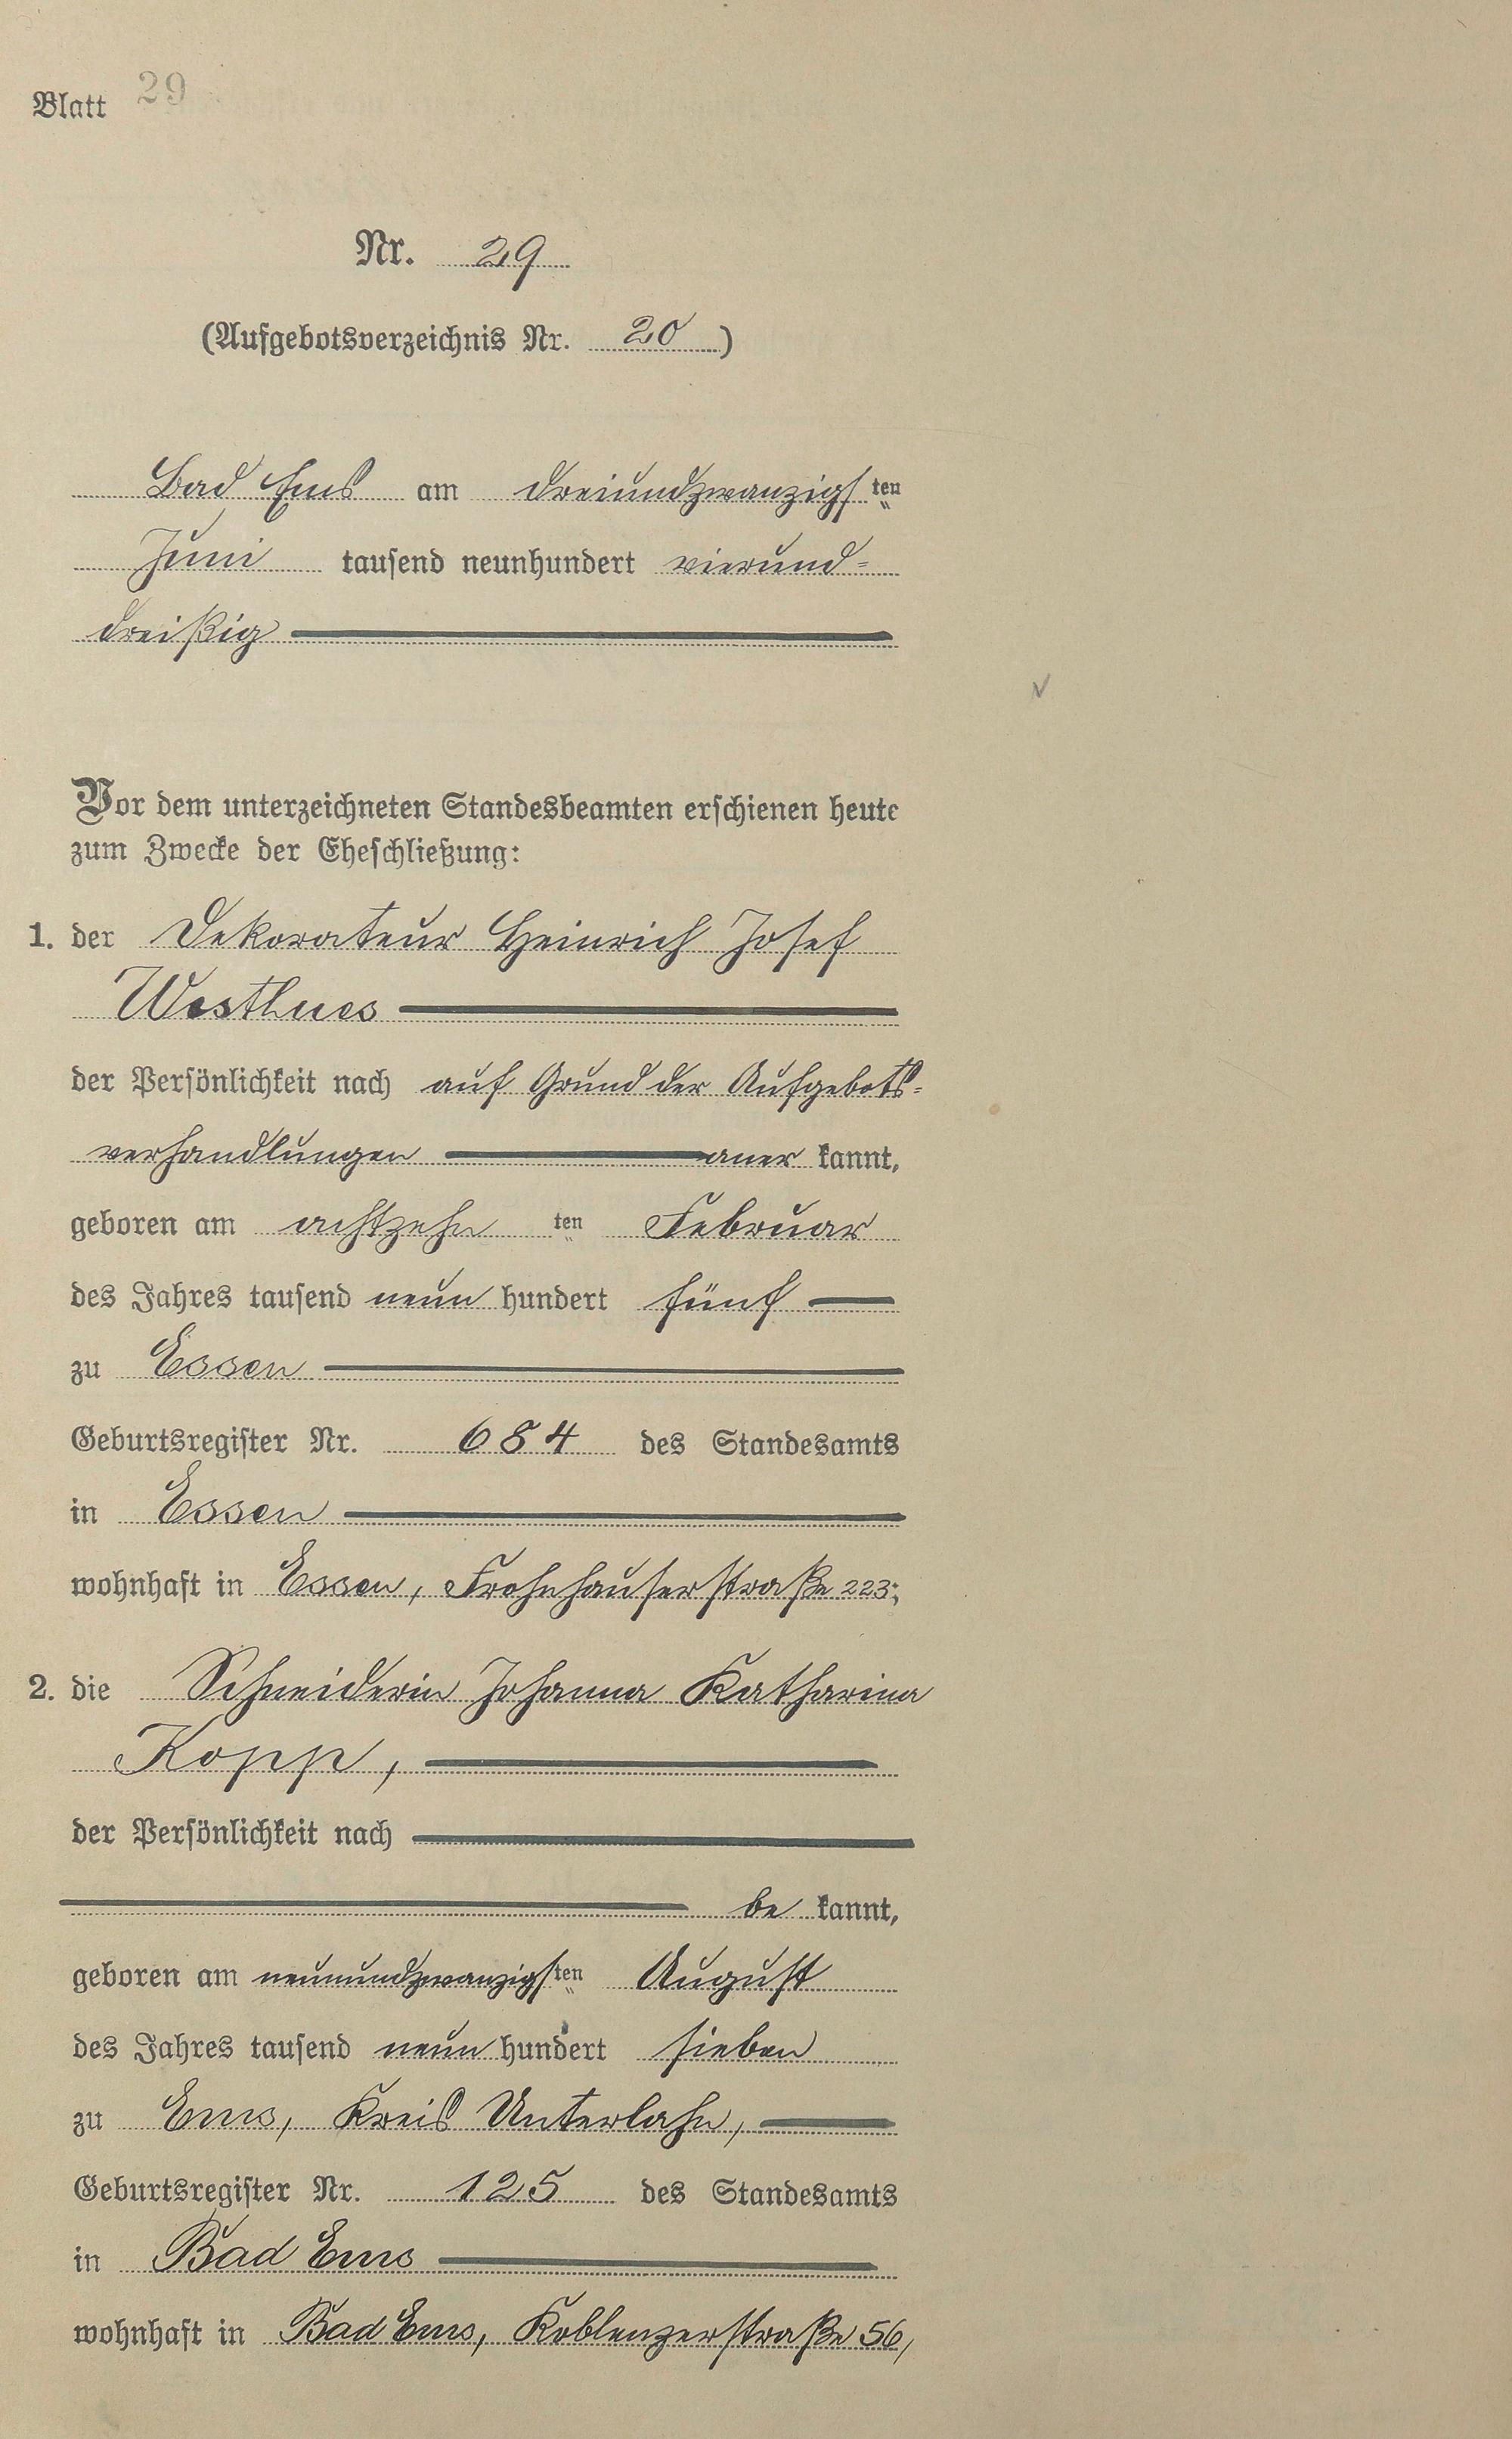 Blatt 29
Nr. 29
(Aufgebotsverzeichnis Nr. 20)
Bad Ems am dreiundzwanzigsten
Juni tausend neunhundert vierund=
dreißig
Vor dem unterzeichneten Standesbeamten erschienen heute
zum Zwecke der Eheschließung:
1. der Dekorateur Heinrich Josef
Westhues
der Persönlichkeit nach auf Grund der Aufgebots=
verhandlungen anerkannt,
geboren am achtzehnten Februar
des Jahres tausend neunhundert fünf
zu Essen
Geburtsregister Nr. 684 des Standesamts
in Essen
wohnhaft in Essen, Frohnhauserstraße 223;
2. die Schneiderin Johanna Katharina
Kopp,
der Persönlichkeit nach
bekannt,
geboren am neunundzwanzigsten August
des Jahres tausend neunhundert sieben
zu Ems, Kreis Unterlahn,
Geburtsregister Nr. 125 des Standesamts
in Bad Ems
wohnhaft in Bad Ems, Koblenzerstraße 56,